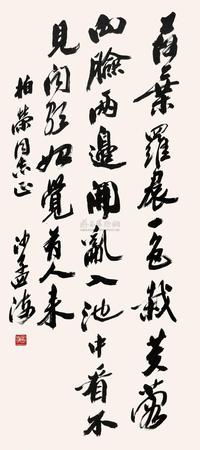 荷葉羅裙一色裁芙蓉
向臉兩邊開亂入池中看不
見聞歌始覺有人來
柏榮同志正 沙孟海